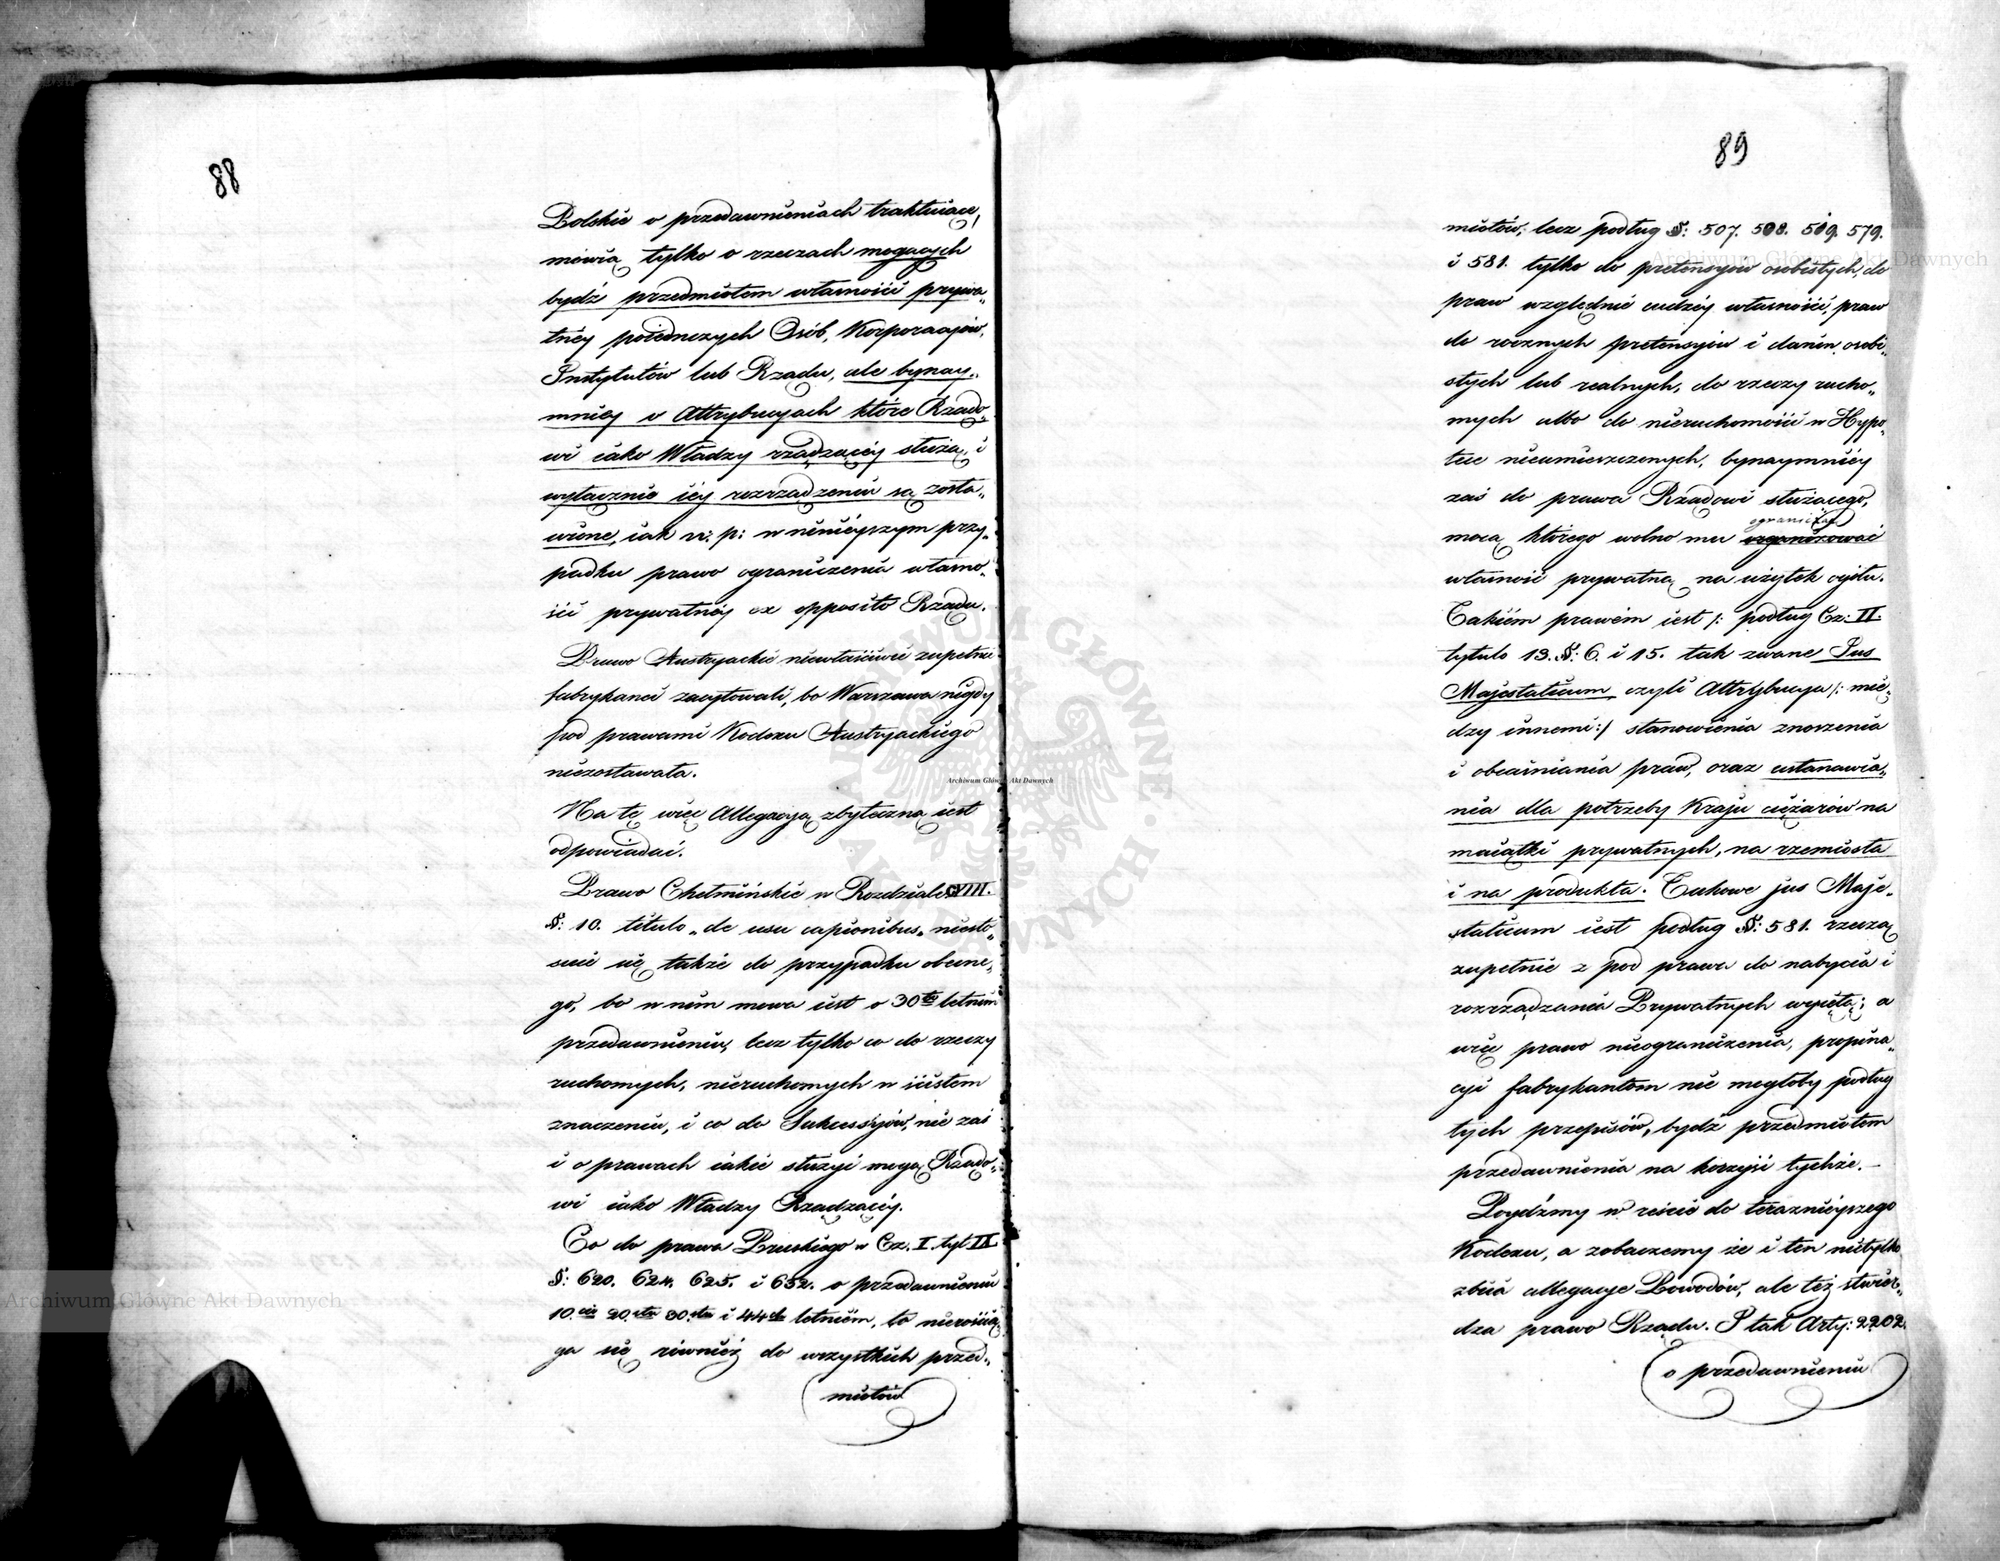 88
Polskie o przedawnieniach traktuiące,
mówią tylko o rzeczach mogących
bydź przedmiotem własności prywa„
tnéy poiedynczych Osób, Korporacyiów,
Instytutów lub Rządu, ale bynay„
mniéy o Attrybucyach które Rządo„
wi iako Władzy rządzącéy służą, i
wyłącznie iéy rozrządzeniu są zosta„
wione, iak n: p: w ninieyszym przy„
padku prawo ograniczenia własno„
ści prywatnéy ex opposito Rządu.
Prawo Austryackie niewłaściwie zupełnie
fabrykanci zacytowali, bo Warszawa nigdy
pod prawami Kodexu Austryackiego
niezostawała.
Na tę więc Allegacyą zbyteczną iest
odpowiadać.
Prawo Chełmińskie w Rozdziale VIII.
§: 10. titulo „de usu capionibus„ niesto„
suie się także do przypadku obecne„
go, bo w nim mowa iest o 30to letnim
przedawnieniu, lecz tylko co do rzeczy
ruchomych, nieruchomych w ścisłem
znaczeniu, i co do Sukcessyiów, nie zaś
i o prawach iakie służyć mogą Rządo„
wi iako Władzy Rządzącéy.
Co do prawa Pruskiego w Cz. I. tyt IX
§: 620. 624. 625. i 632. o przedawnieniu
10.cio 20.sto 30.sto i 44ch letniém, to nierością„
ga się również do wszystkich przed„
miotów
89
miotów; lecz podług §: 507. 508. 509. 579.
i 581. tylko do pretensyów osobistych, do
praw względnie cudzéy własności, praw
do rocznych pretensyiw i danin osobi„
stych lub realnych, do rzeczy rucho„
mych albo do nieruchomości w Hypo„
tece nieumieszczonych, bynaymniéy
zaś do prawa Rządowi służącego,
ograniczać
mocą którego wolno mu organizować
własność prywatną na użytek ogółu.
Takiém prawem iest /: podług Cz: II.
tytulo 13. §: 6. i 15. tak zwane Jus
Majestaticum, czyli Attrybucya /: mię„
dzy innemi :/ stanowienia znoszenia
i obiaśniania praw, oraz ustanawia„
nia dla potrzeby Kraju ciężarów na
maiątki prywatnych, na rzemiosła
i na produkta. Takowe jus Maje„
staticum iest podług §: 581. rzeczą
zupełnie z pod prawa do nabycia i
rozrządzania Prywatnych wyiętą; a
więc prawo nieograniczenia, propina„
cyi fabrykantom nie mogłoby podług
tych przepisów, bydź przedmiotem
przedawnienia na korzyść tychże. —
Poydźmy w reście do teraźnieyszego
Kodexu, a zobaczemy że i ten nietylko
zbiia allegacye Powodów, ale też stwier„
dza prawo Rządu. I tak Arty: 2202.
o przedawnieniu
Archiwum Główne Akt Dawnych